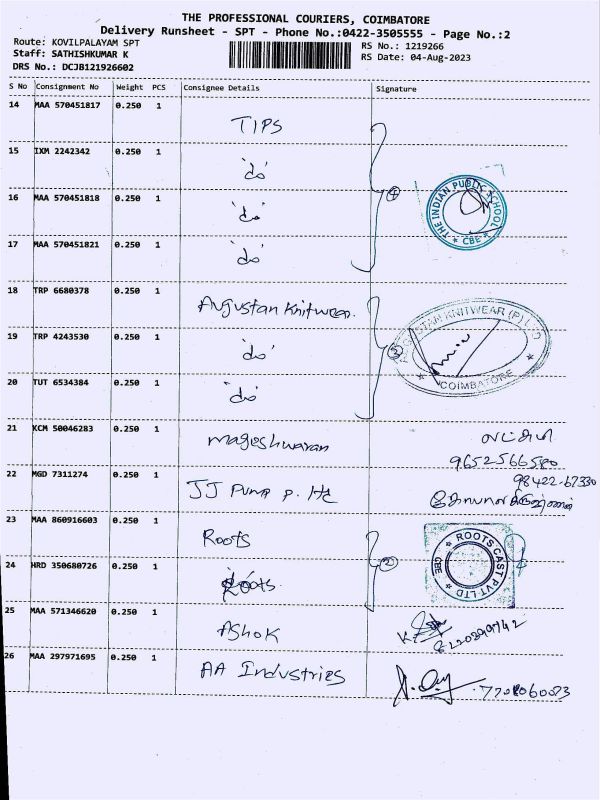 THE PROFESSIONAL COURIERS, COIMBATORE
Delivery Runsheet - SPT - Phone No.:0422-3505555 - Page No.:2
Route: KOVILPALAYAM SPT
RS No.: 1219266
Staff: SATHISHKUMAR K
RS Date: 04-Aug-2023
DRS No.: DCJB121926602
S No Consignment No Weight PCS Consignee Details Signature
14 MAA 570451817 0.250 1 TIPS
15 IXM 2242342 0.250 1 "do"
16 MAA 570451818 0.250 1 "do"
4
THE INDIAN PUBLIC SCHOOL
★ CBE ★
17 MAA 570451821 0.250 1 "do"
18 TRP 6680378 0.250 1 Augustan Knitwear.
19 TRP 4243530 0.250 1 "do"
3
AUGUSTAN KNITWEAR (P) LTD
★ COIMBATORE ★
20 TUT 6534384 0.250 1 "do"
21 KCM 50046283 0.250 1 Mageshwaran
22 MGD 7311274 0.250 1 JJ Pump P. Ltd
98422-67330
23 MAA 860916603 0.250 1 Roots
2
★ ROOTS CAST PVT LTD ★
CBE
24 HRD 350680726 0.250 1 Roots.
25 MAA 571346620 0.250 1 Ashok
26 MAA 297971695 0.250 1 AA Industries